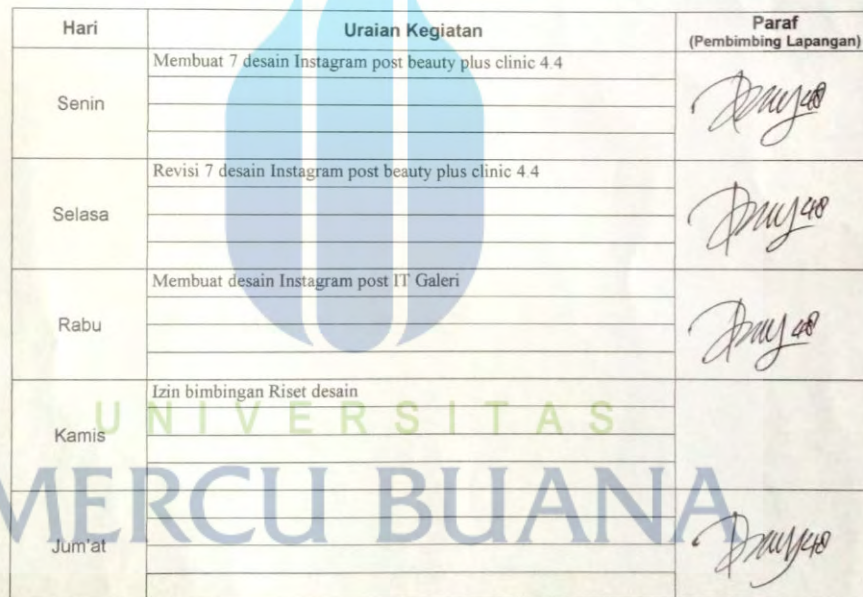 Hari Uraian Kegiatan Paraf
(Pembimbing Lapangan)
Membuat 7 desain Instagram post beauty plus clinic 4.4
Senin
Revisi 7 desain Instagram post beauty plus clinic 4.4
Selasa
Membuat desain Instagram post IT Galeri
Rabu
Izin bimbingan Riset desain
Kamis
UNIVERSITAS
MERCU BUANA
Jum'at